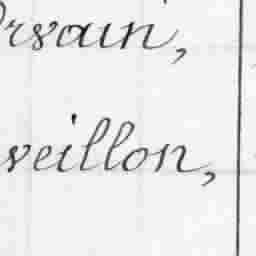 rvain,
veillon,